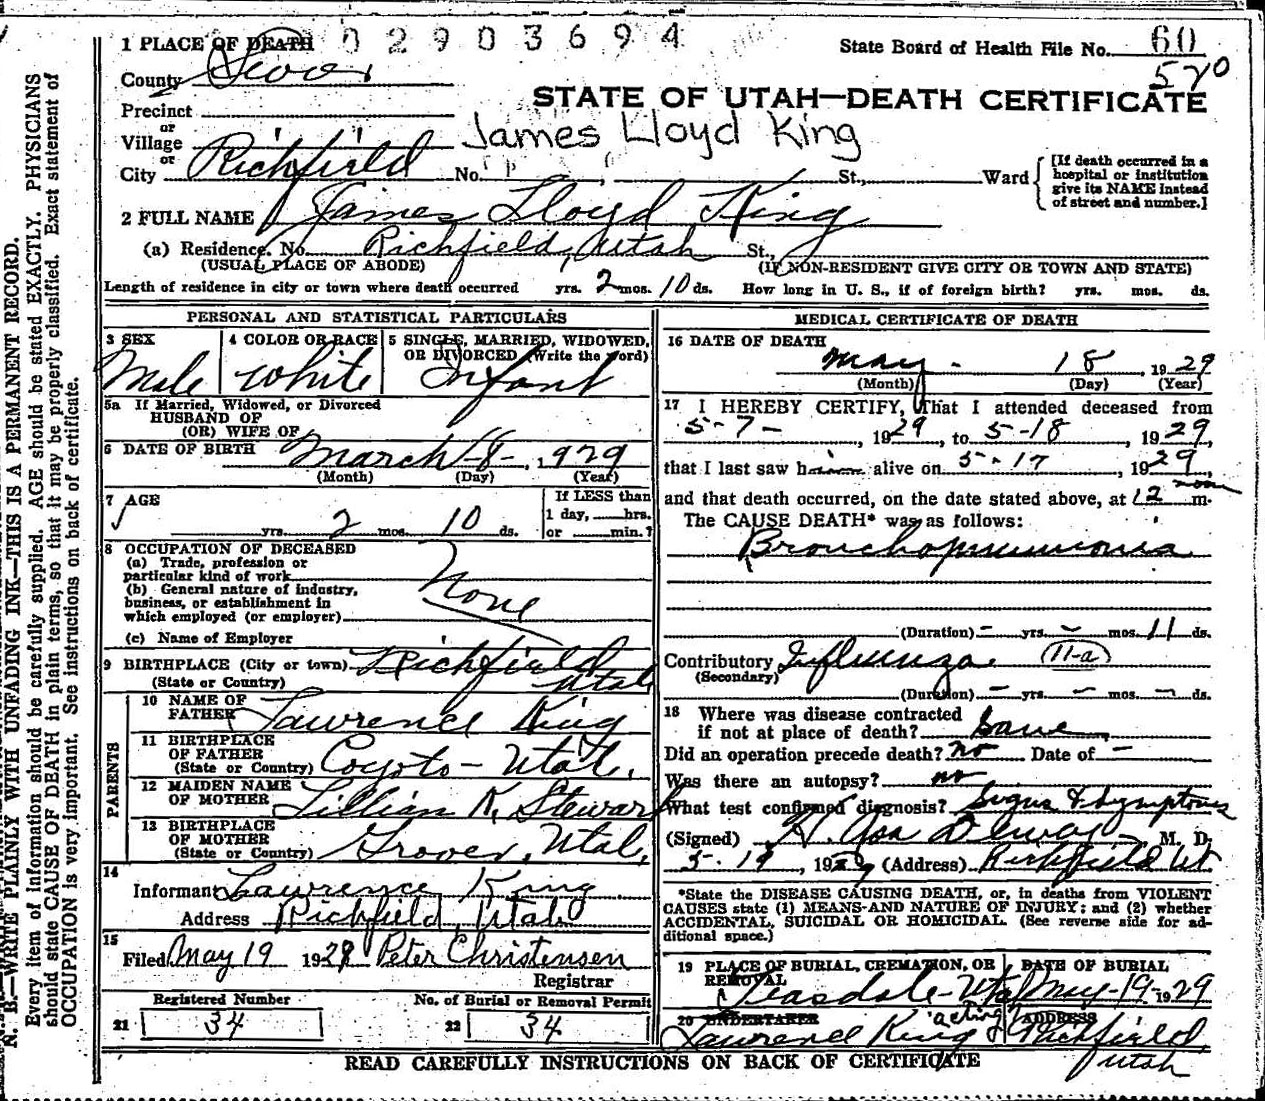 1 PLACE OF DEATH 02903694
State Board of Health File No. 60
570
County Sevier
STATE OF UTAH—DEATH CERTIFICATE
Precinct
or
Village
James Lloyd King
or
City Richfield No. St., Ward
[If death occurred in a
hospital or institution
give its NAME instead
of street and number.]
2 FULL NAME James Lloyd King
(a) Residence. No. Richfield, Utah St.,
(USUAL PLACE OF ABODE) (IF NON-RESIDENT GIVE CITY OR TOWN AND STATE)
Length of residence in city or town where death occurred yrs. 2 mos. 10 ds. How long in U. S., if of foreign birth? yrs. mos. ds.
PERSONAL AND STATISTICAL PARTICULARS
3 SEX 4 COLOR OR RACE 5 SINGLE, MARRIED, WIDOWED,
OR DIVORCED (Write the word)
Male White Infant
5a If Married, Widowed, or Divorced
HUSBAND OF
(OR) WIFE OF
6 DATE OF BIRTH March-8-, 1929
(Month) (Day) (Year)
7 AGE
If LESS than
1 day, hrs.
yrs. 2 mos. 10 ds. or min.?
8 OCCUPATION OF DECEASED
(a) Trade, profession or
particular kind of work
(b) General nature of industry,
business, or establishment in
which employed (or employer)
None
(c) Name of Employer
9 BIRTHPLACE (City or town) Richfield
(State or Country) Utah
PARENTS
10 NAME OF
FATHER Lawrence King
11 BIRTHPLACE
OF FATHER
(State or Country) Coyoto-Utah.
12 MAIDEN NAME
OF MOTHER Lillian K. Steward
13 BIRTHPLACE
OF MOTHER
(State or Country) Grover, Utah.
14
Informant Lawrence King
Address Richfield, Utah
15
Filed May 19 1929 Peter Christensen
Registrar
Registered Number No. of Burial or Removal Permit
21 34 22 34
MEDICAL CERTIFICATE OF DEATH
16 DATE OF DEATH
May - 18, 1929
(Month) (Day) (Year)
17 I HEREBY CERTIFY, That I attended deceased from
5-7-, 1929, to 5-18, 1929,
that I last saw him alive on 5-17, 1929,
and that death occurred, on the date stated above, at 12 noon m.
The CAUSE DEATH* was as follows:
Bronchopneumonia
(Duration) - yrs. - mos. 11 ds.
Contributory Influenza. 11-a
(Secondary)
(Duration) - yrs. - mos. - ds.
18 Where was disease contracted
if not at place of death? Same
Did an operation precede death? No Date of -
Was there an autopsy? no
What test confirmed diagnosis? Signs & Symptoms
(Signed) H. Asa Dewey M. D.
5-19, 1929 (Address) Richfield Ut
*State the DISEASE CAUSING DEATH, or, in deaths from VIOLENT
CAUSES state (1) MEANS AND NATURE OF INJURY; and (2) whether
ACCIDENTAL, SUICIDAL OR HOMICIDAL. (See reverse side for ad-
ditional space.)
19 PLACE OF BURIAL, CREMATION, OR DATE OF BURIAL
REMOVAL
Teasdale-Utah May-19-1929
20 UNDERTAKER acting ADDRESS
Lawrence King Richfield,
Utah
READ CAREFULLY INSTRUCTIONS ON BACK OF CERTIFICATE
N. B.—WRITE PLAINLY WITH UNFADING INK—THIS IS A PERMANENT RECORD.
Every item of information should be carefully supplied. AGE should be stated EXACTLY. PHYSICIANS
should state CAUSE OF DEATH in plain terms, so that it may be properly classified. Exact statement of
OCCUPATION is very important. See instructions on back of certificate.